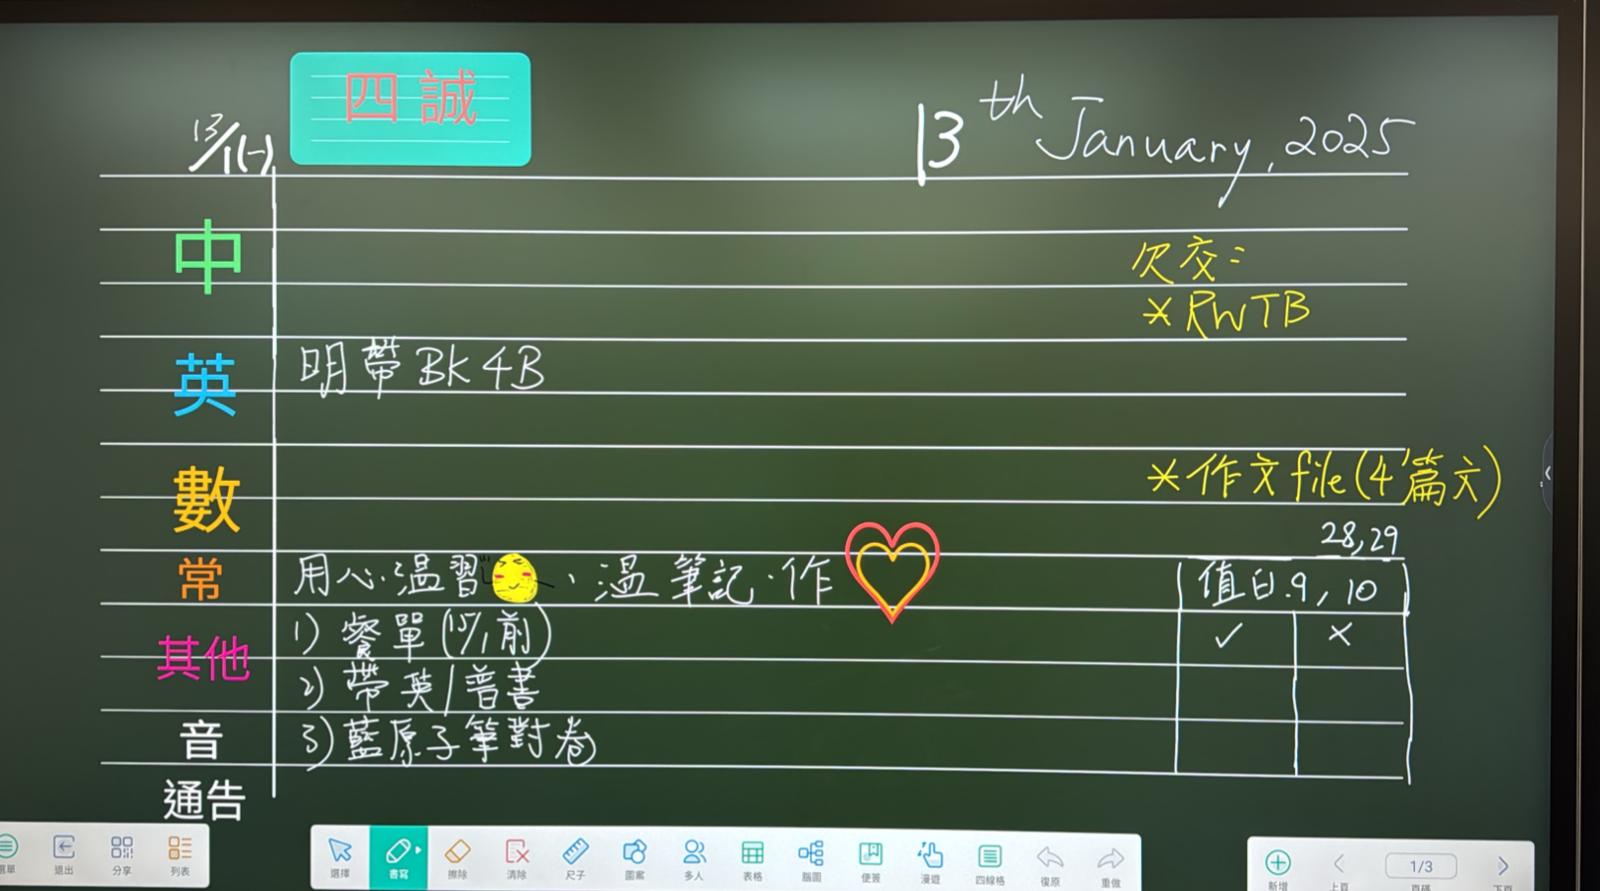 四誠
13/1(一)
13th January, 2025
中
欠交：
*RWTB
英
明帶BK 4B
數
*作文file(4篇文)
28,29
常
用心溫習、溫筆記.作
值日.9, 10
✓ ×
其他
1) 餐單(15/1前)
2) 帶英/普書
音
3) 藍原子筆對卷
通告
選單
退出
分享
列表
選擇
書寫
擦除
清除
尺子
圖案
多人
表格
腦圖
便簽
漫遊
四線格
復原
重做
新增
上頁
1/3
頁碼
下頁